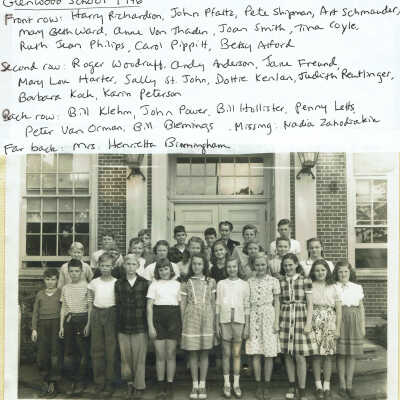 Glenwood School 1946
Front row: Harry Richardson, John Pfaltz, Pete Shipman, Art Schmauder,
Mary Beth Ward, Anne Von Thaden, Joan Smith, Tina Coyle,
Ruth Jean Philips, Carol Pippitt, Betsy Axford
Second row: Roger Woodruff, Andy Anderson, Jane Freund,
Mary Lou Harter, Sally St. John, Dottie Kenlan, Judith Reutlinger,
Barbara Koch, Karin Peterson
Back row: Bill Klehm, John Power, Bill Hollister, Penny Letts,
Peter Van Orman, Bill Bemings. Missing: Nadia
Far back: Mrs. Henrietta Birmingham